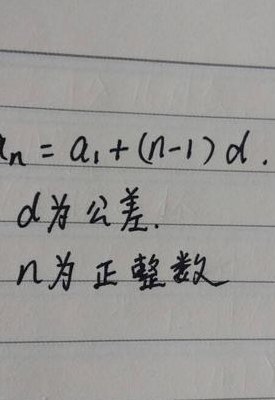 aₙ = a₁ + (n-1) d.
d为公差.
n为正整数